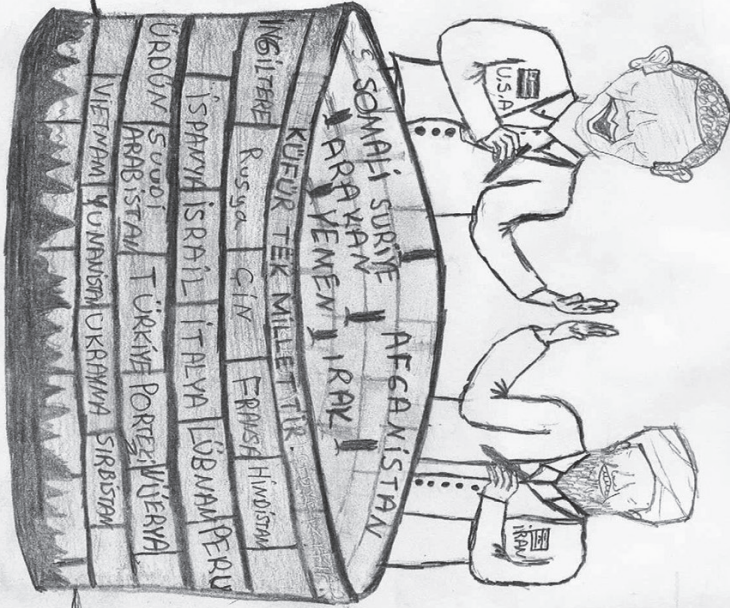 U.S.A
İRAN
SOMALİ SURİYE AFGANİSTAN
ARAKAN YEMEN IRAK
KÜFÜR TEK MİLLETTİR.
İNGİLTERE Rusya ÇİN FRANSA HİNDİSTAN
İSPANYA İSRAİL İTALYA LÜBNAN PERU
ÜRDÜN SUUDİ ARABİSTAN TÜRKİYE PORTEKİZ NİJERYA
VİETNAM YUNANİSTAN UKRAYNA SIRBİSTAN